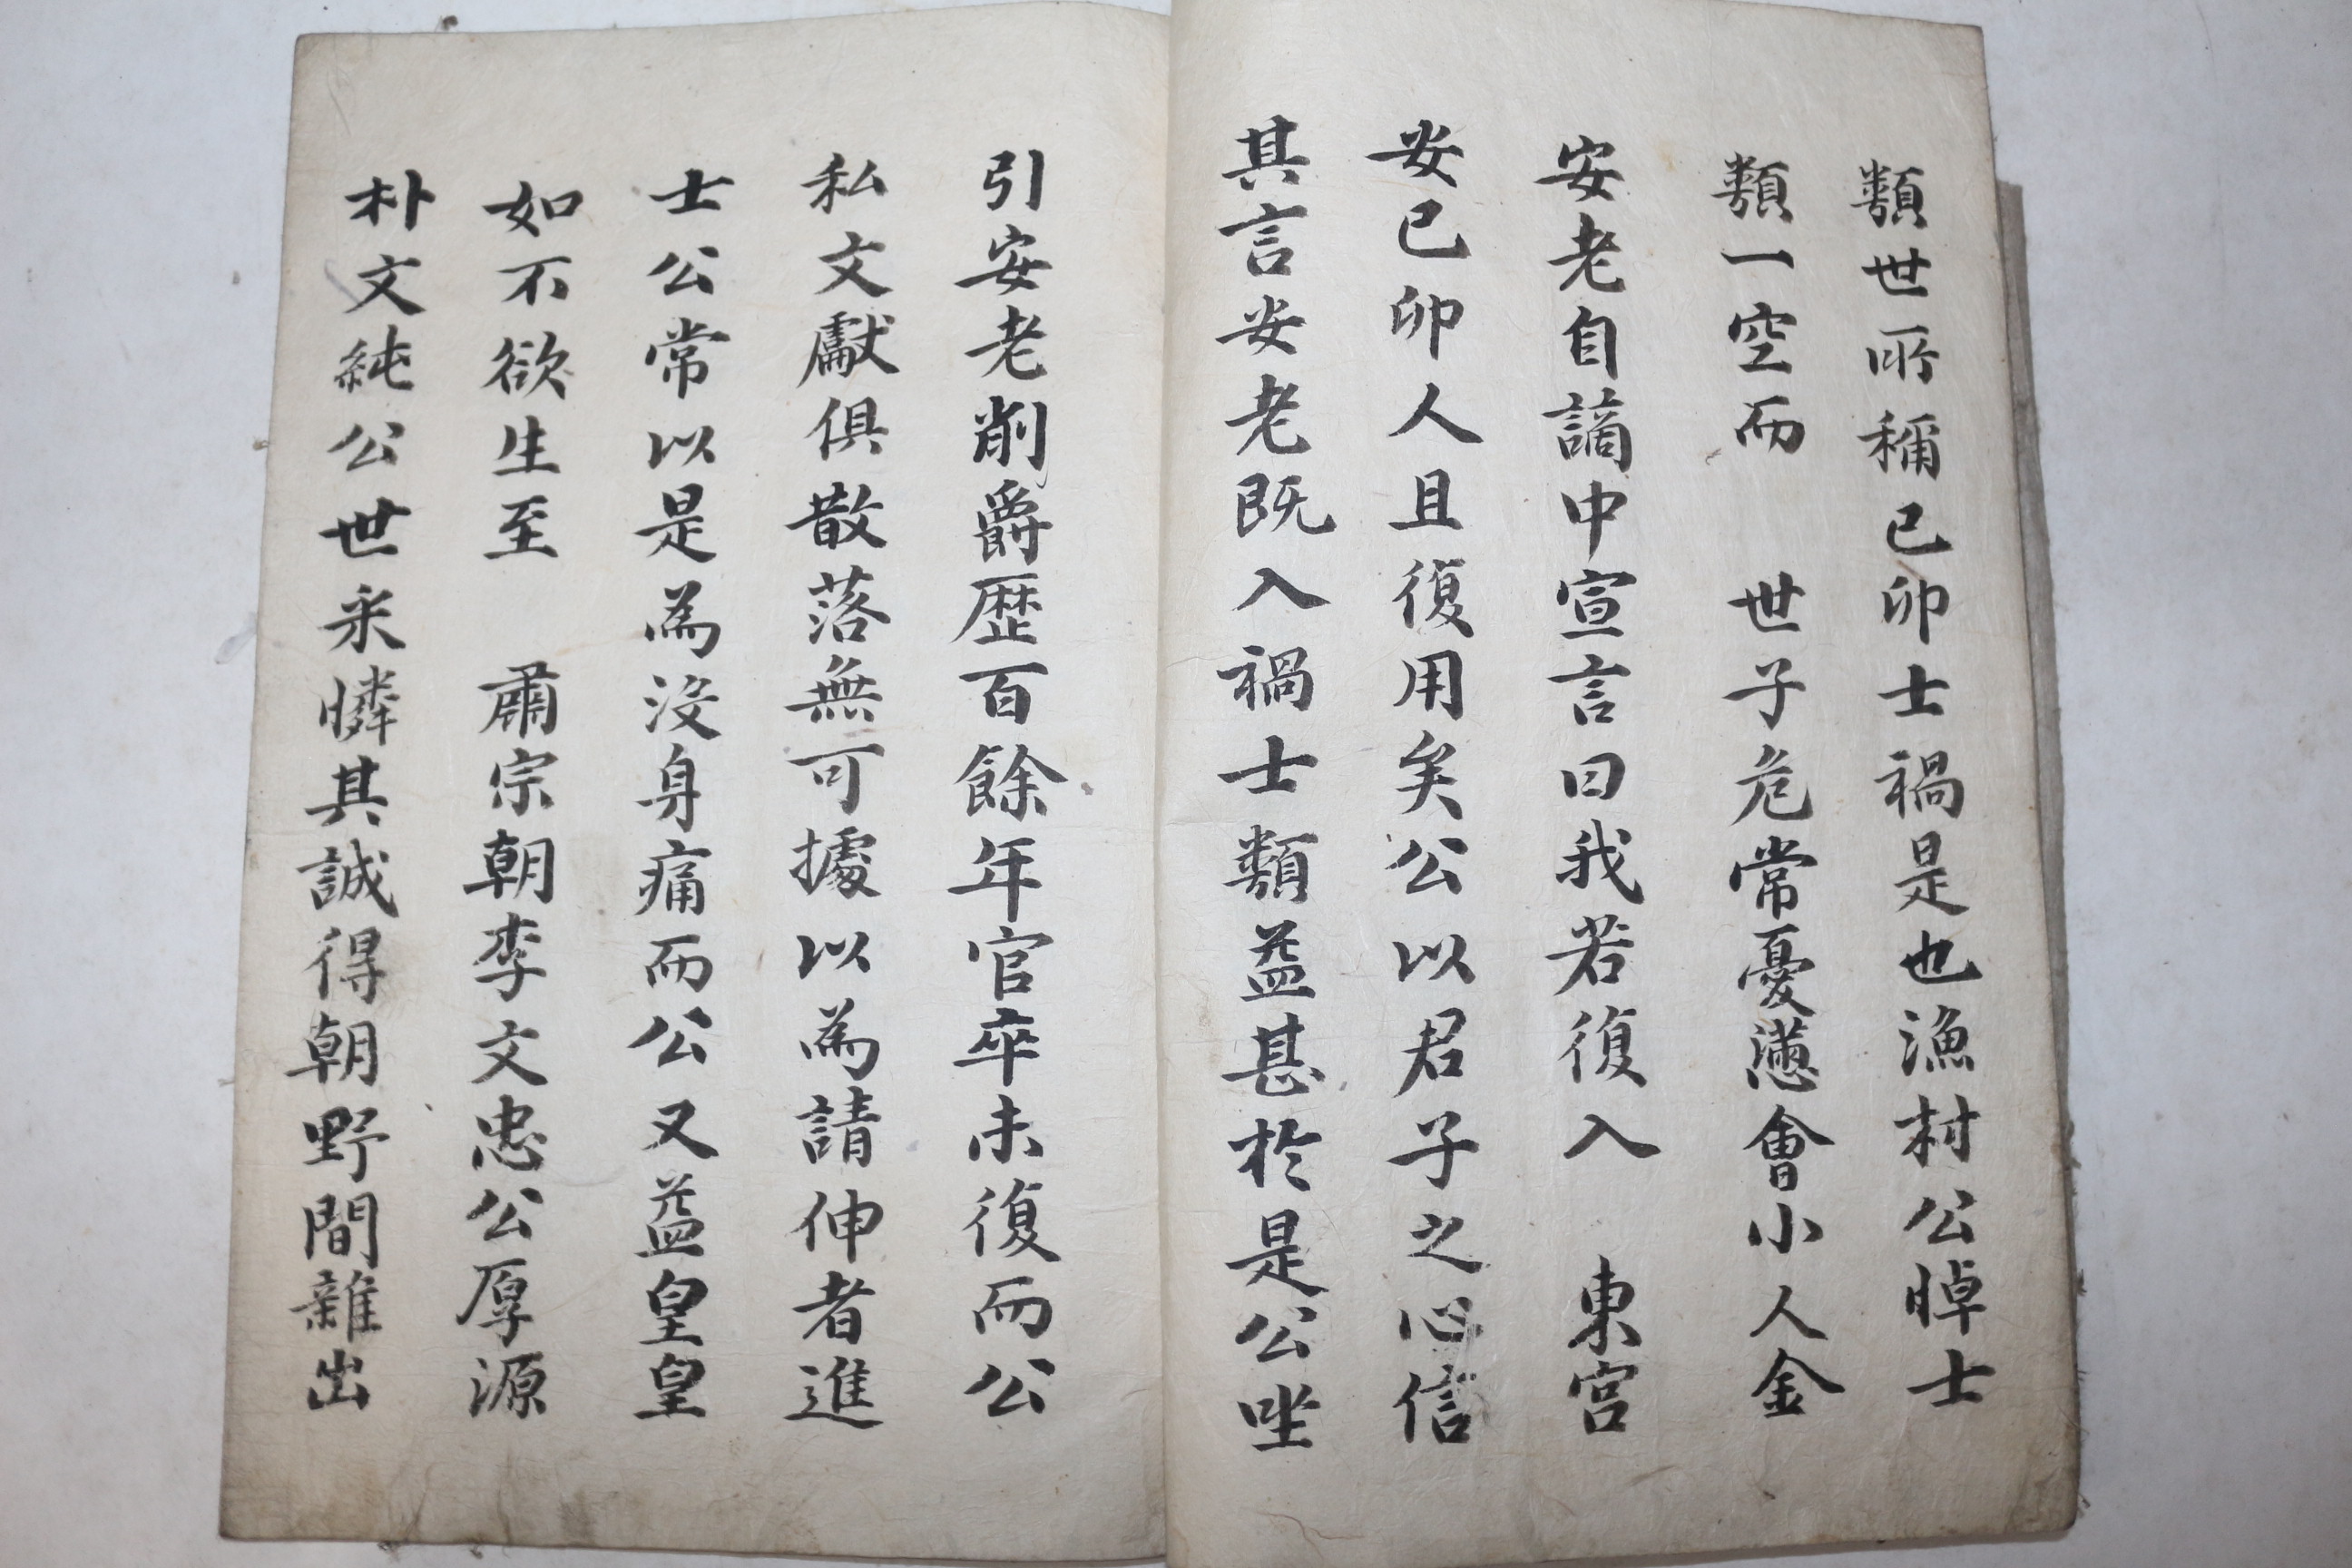 類世所稱己卯士禍是也漁村公悼士
類一空而 世子危常憂懣會小人金
安老自謫中宣言曰我若復入 東宮
安己卯人且復用矣公以君子之心信
其言安老既入禍士類益甚於是公坐
引安老削爵歷百餘年官卒未復而公
私文獻俱散落無可據以為請伸者進
士公常以是為沒身痛而公又益皇皇
如不欲生至 肅宗朝李文忠公厚源
朴文純公世采憐其誠得朝野間雜出